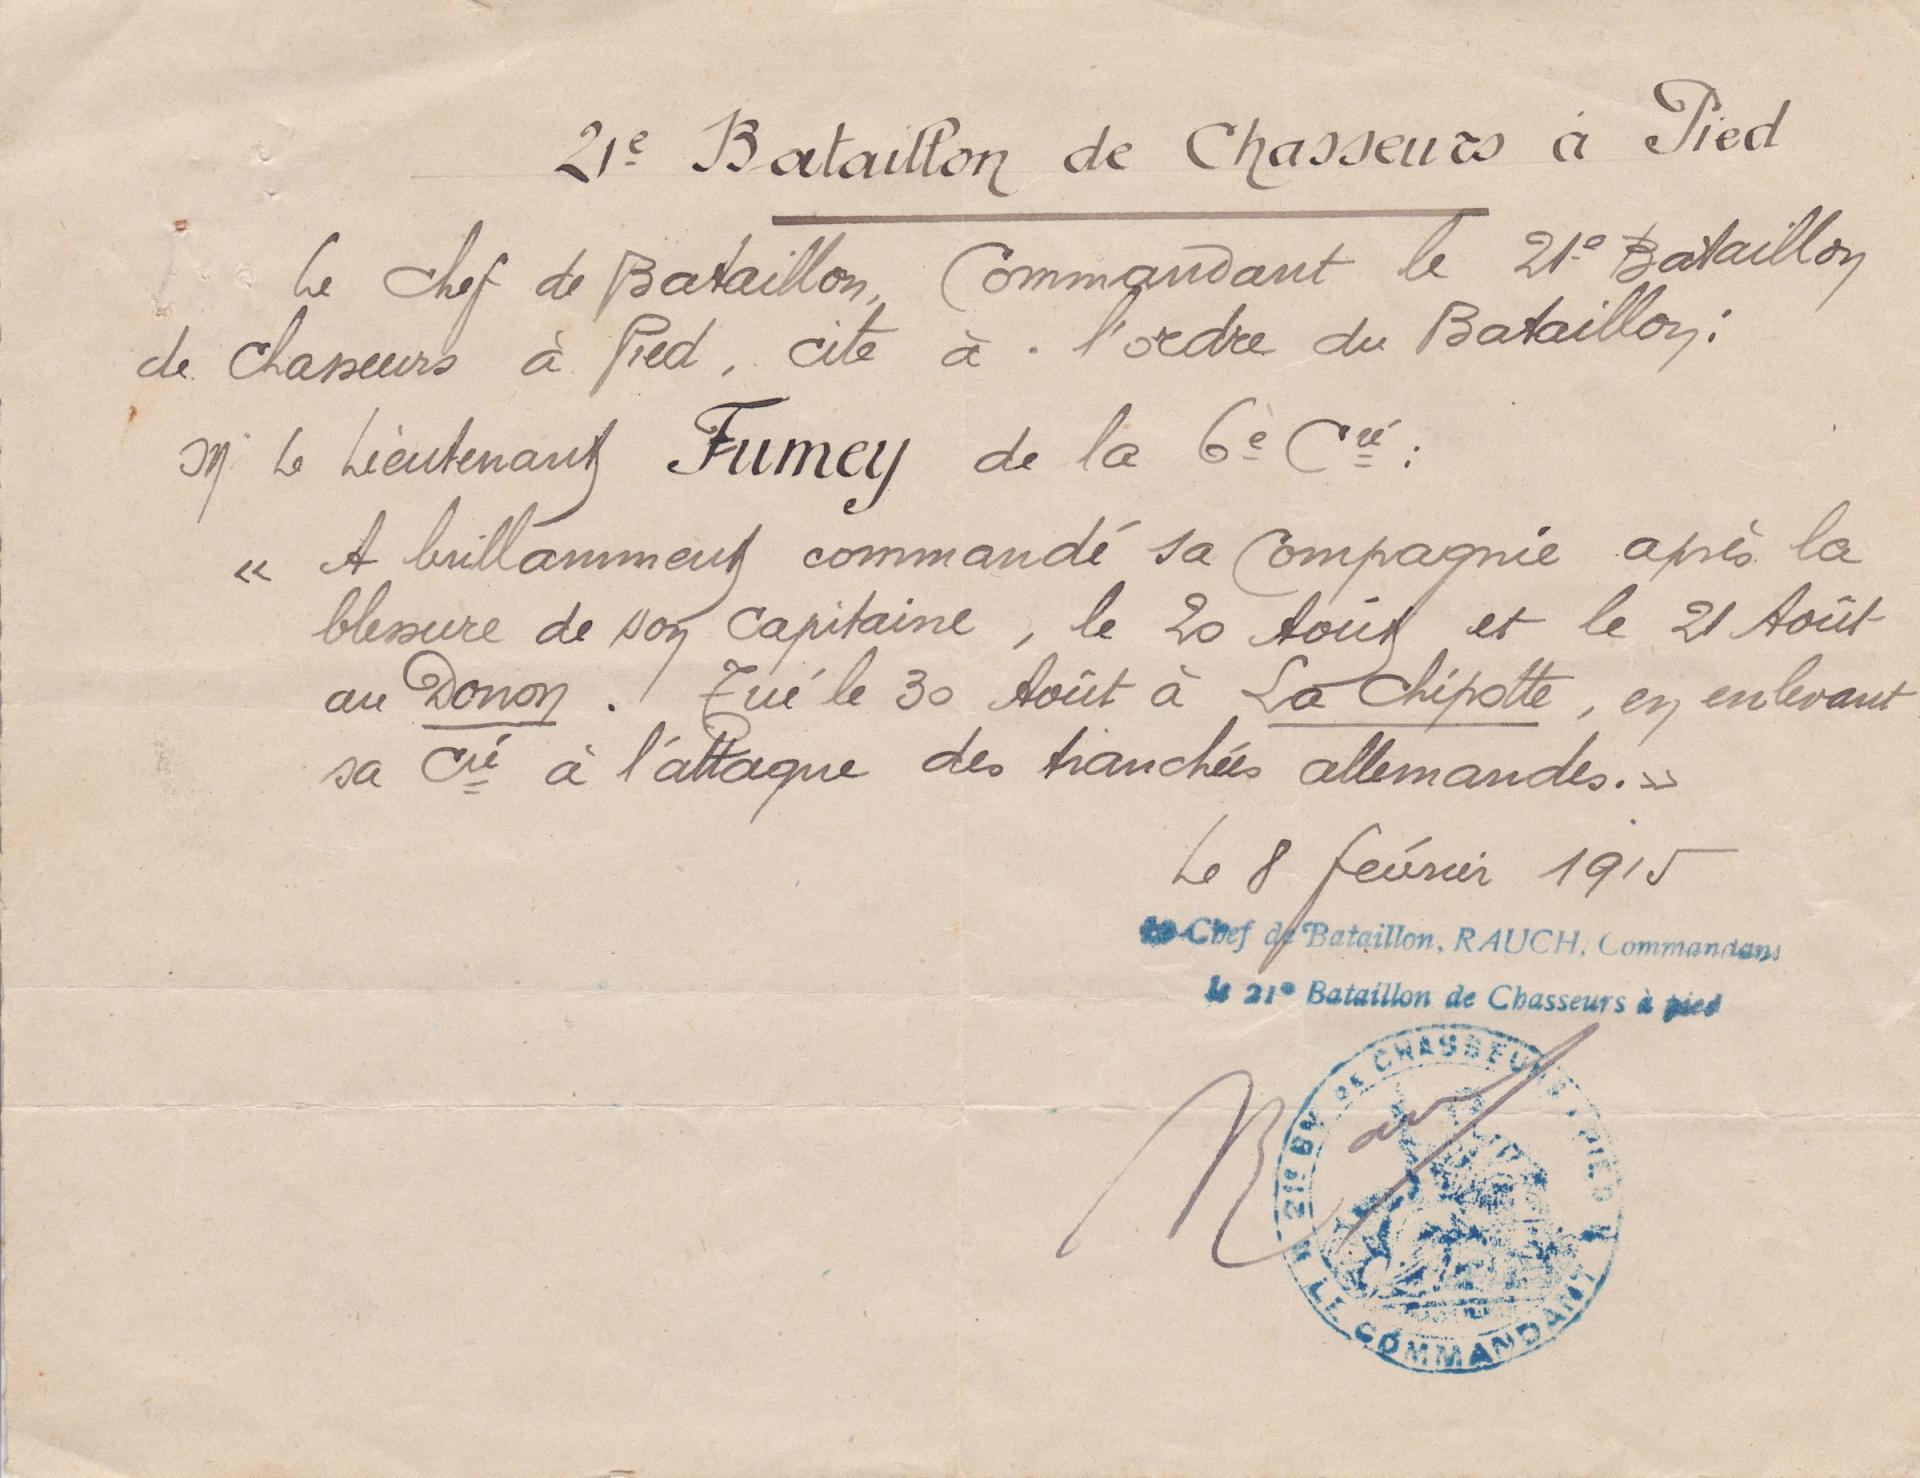 21e Bataillon de Chasseurs à Pied
Le Chef de Bataillon, Commandant le 21e Bataillon
de Chasseurs à Pied, cite à l'ordre du Bataillon:
M le Lieutenant Fumey de la 6e Cie:
« A brillamment commandé sa Compagnie après la
blessure de son Capitaine, le 20 Août et le 21 Août
au Donon. Tué le 30 Août à La Chipotte, en enlevant
sa Cie à l'attaque des tranchées allemandes. »
Le 8 février 1915
Le Chef de Bataillon, RAUCH, Commandant
le 21e Bataillon de Chasseurs à pied
21e BON DE CHASSEURS A PIED
LE COMMANDANT